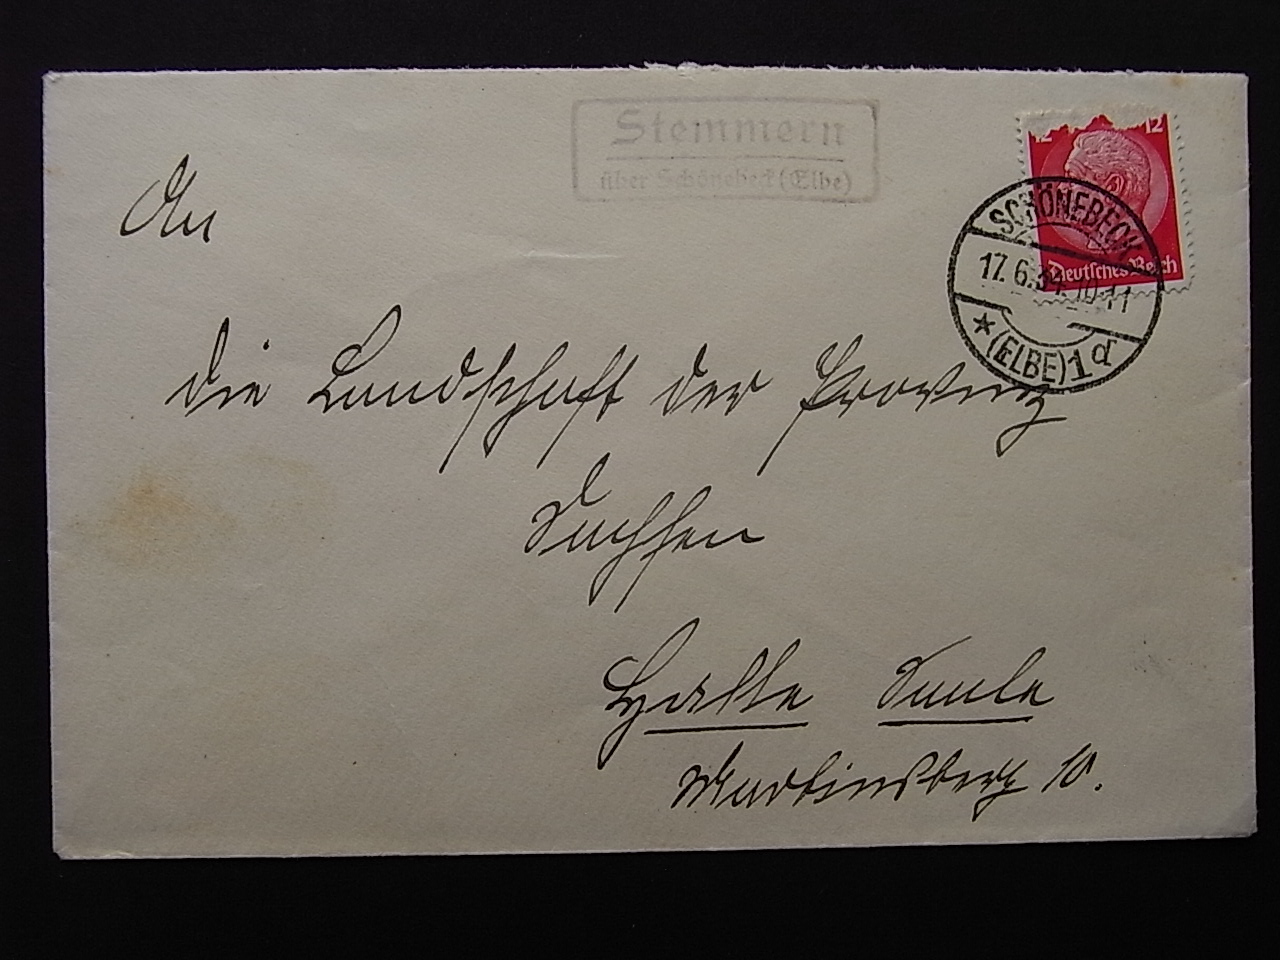 Stemmern
über Schönebeck (Elbe)
12 12
Deutsches Reich
SCHÖNEBECK
17.6.34. 10-11
* (ELBE) 1 d
An
die Landschaft der Provinz
Sachsen
Halle Saale
Martinsberg 10.